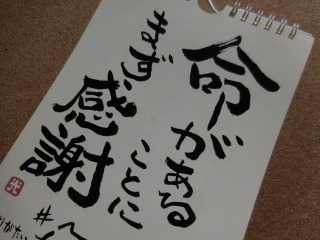 命がある
ことに
まず
感謝